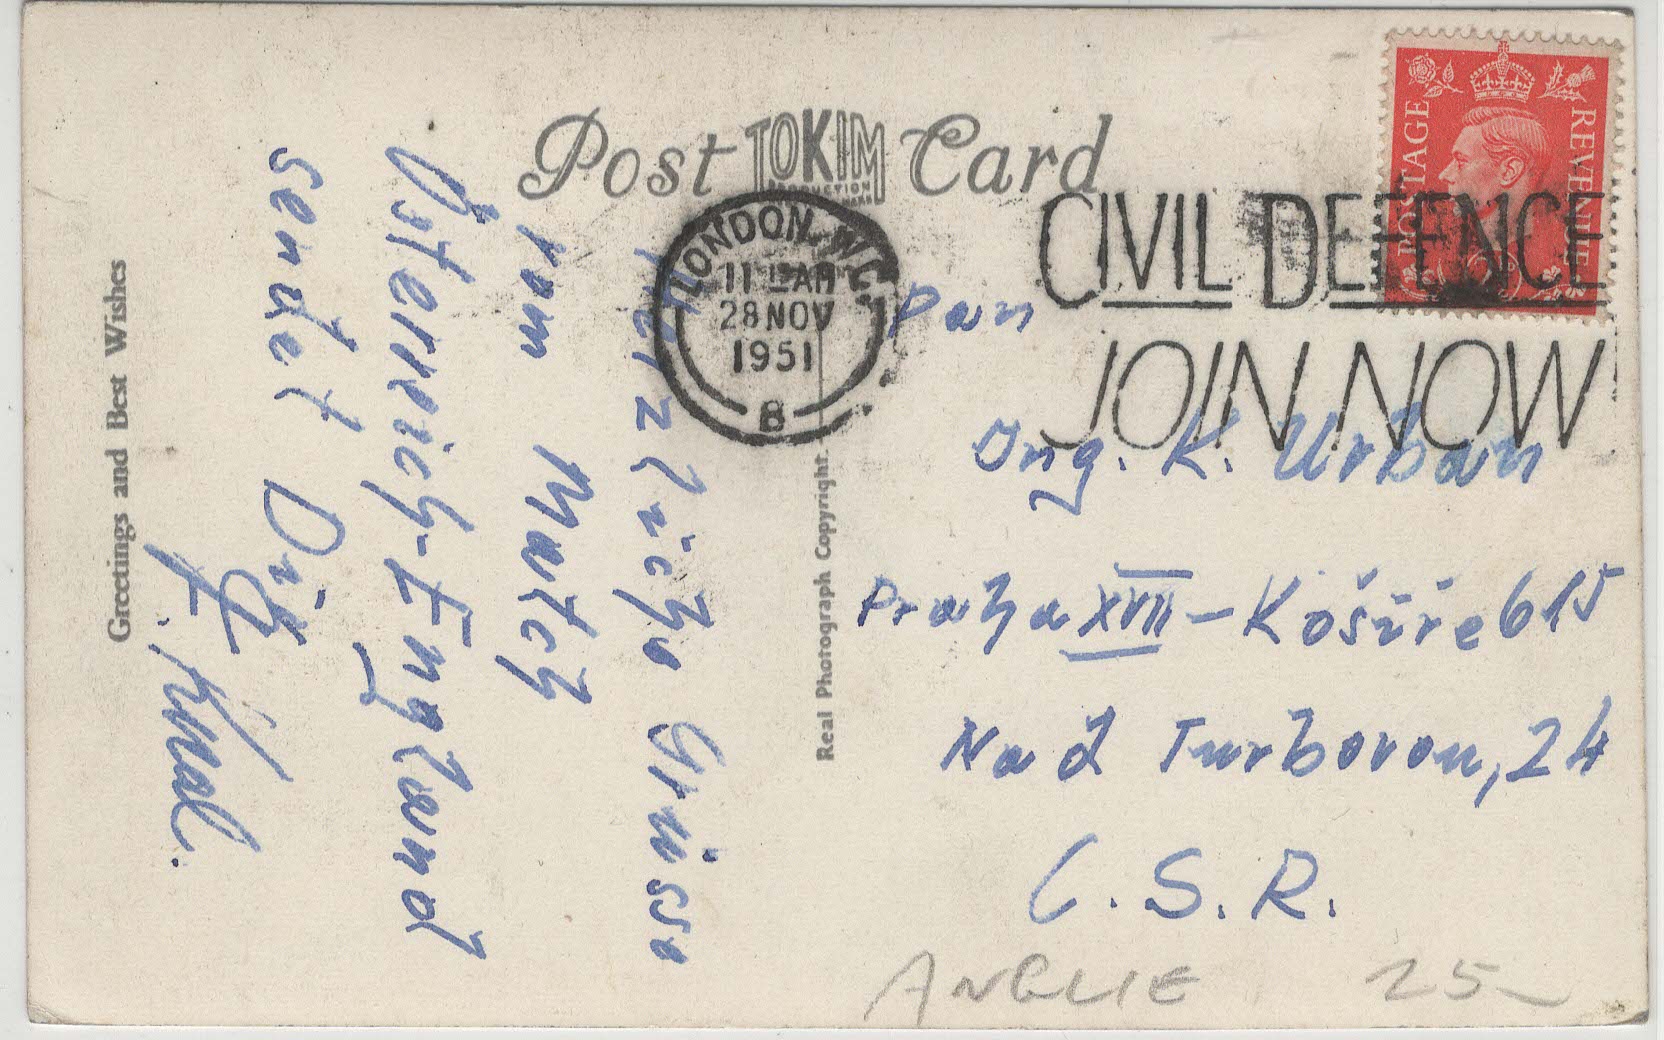 Post TOKIM Card
PRODUCTION
LONDON. W.C.
11 15 AM
28 NOV
1951
B
CIVIL DEFENCE
JOIN NOW
POSTAGE
REVENUE
Herzliche Grüsse
vom Match
Österreich-England
sendet Dir
F. Knal.
Greetings and Best Wishes
Real Photograph Copyright.
Pan
Ing. K. Urban
Praha XVII - Košíře 615
Nad Turbovou, 24
Č. S. R.
ANGLIE 25-